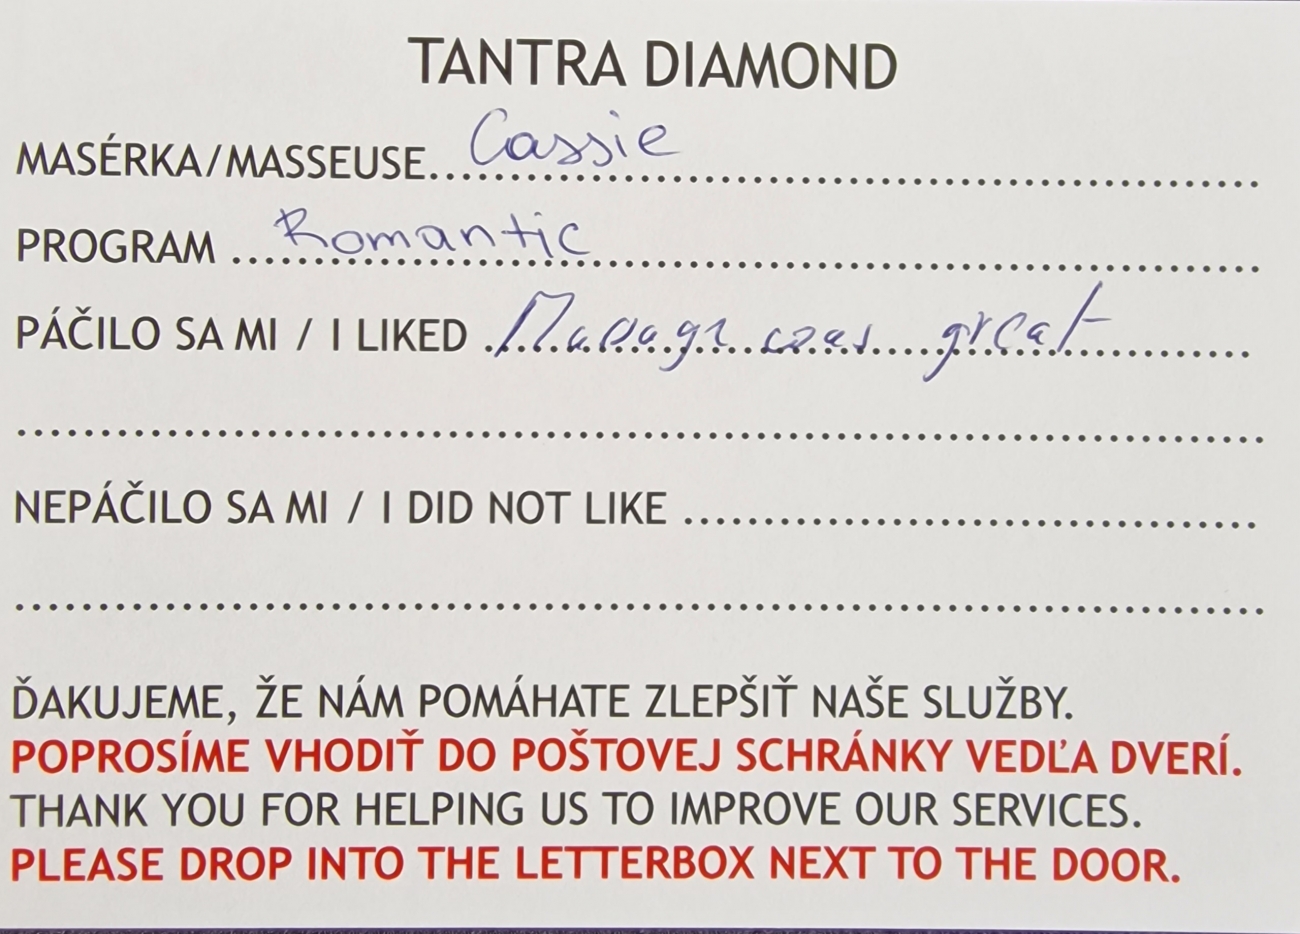 TANTRA DIAMOND
MASÉRKA/MASSEUSE.... Cassie
PROGRAM .... Romantic
PÁČILO SA MI / I LIKED .... was great
NEPÁČILO SA MI / I DID NOT LIKE ....
ĎAKUJEME, ŽE NÁM POMÁHATE ZLEPŠIŤ NAŠE SLUŽBY.
POPROSÍME VHODIŤ DO POŠTOVEJ SCHRÁNKY VEDĽA DVERÍ.
THANK YOU FOR HELPING US TO IMPROVE OUR SERVICES.
PLEASE DROP INTO THE LETTERBOX NEXT TO THE DOOR.